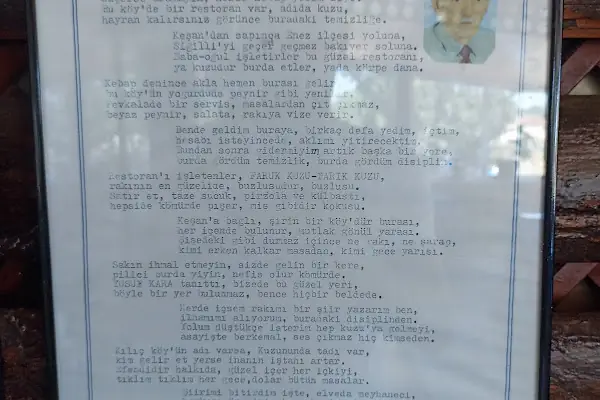 bu köy'de bir restoran var, adıda kuzu,
hayran kalırsınız görünce buradaki temizliğe.
Keşan'dan sapınca Enez ilçesi yoluna,
Sığıllı'yi geçer geçmez bakıver soluna.
Baba-oğul işletirler bu güzel restoranı,
ya kuzudur burda etler, yada körpe dana.
Kebap denince akla hemen burası gelir
bu köy'ün yoğurduda peynir gibi yenilir.
Fevkalade bir servis, masalardan çıt çıkmaz,
beyaz peynir, salata, rakıya vize verir.
Bende geldim buraya, birkaç defa yedim, içtim,
hesabı isteyincede, aklımı yitirecektim.
Bundan sonra gidermiyim artık başka bir yere,
burda gördüm temizlik, burda gördüm disiplin.
Restoran'ı işletenler, FARUK KUZU-TARIK KUZU,
rakının en güzelide, buzlusudur, buzlusu.
Satır et, taze sucuk, pirzola ve külbastı,
hepside kömürde pişer, mis gibidir kokusu.
Keşan'a bağlı, şirin bir köy'dür burası,
her içemde bulunur, mutlak gönül yarası.
Şişedeki gibi durmaz içince ne rakı, ne şarap,
kimi erken kalkar masadan, kimi gece yarısı.
Sakın ihmal etmeyin, sizde gelin bir kere,
pilici burda yiyin, nefis olur kömürde.
YUSUF KARA tanıttı, bizede bu güzel yeri,
böyle bir yer bulunmaz, bence hiçbir beldede.
Nerde içsem rakımı bir şiir yazarım ben,
ilhamımı alıyorum, buradaki disiplinden.
Yolum düştükçe isterim hep kuzu'ya gelmeyi,
asayişte berkemal, ses çıkmaz hiç kimseden.
Kılıç köy'ün adı varsa, Kuzununda tadı var,
kim gelir et yerse inanın iştahı artar.
Efendidir balkıda, güzel içer her içkiyi,
tıklım tıklım her gece, dolar bütün masalar.
Şiirimi bitirdim işte, elveda meyhaneci,